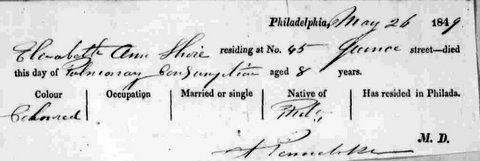 Philadelphia, May 26 1849
Elizabeth Ann Shire residing at No. 45 Quince street—died
this day of Pulmonary Consumption aged 8 years.
Colour Occupation Married or single Native of Has resided in Philada.
Coloured Phila
M. D.